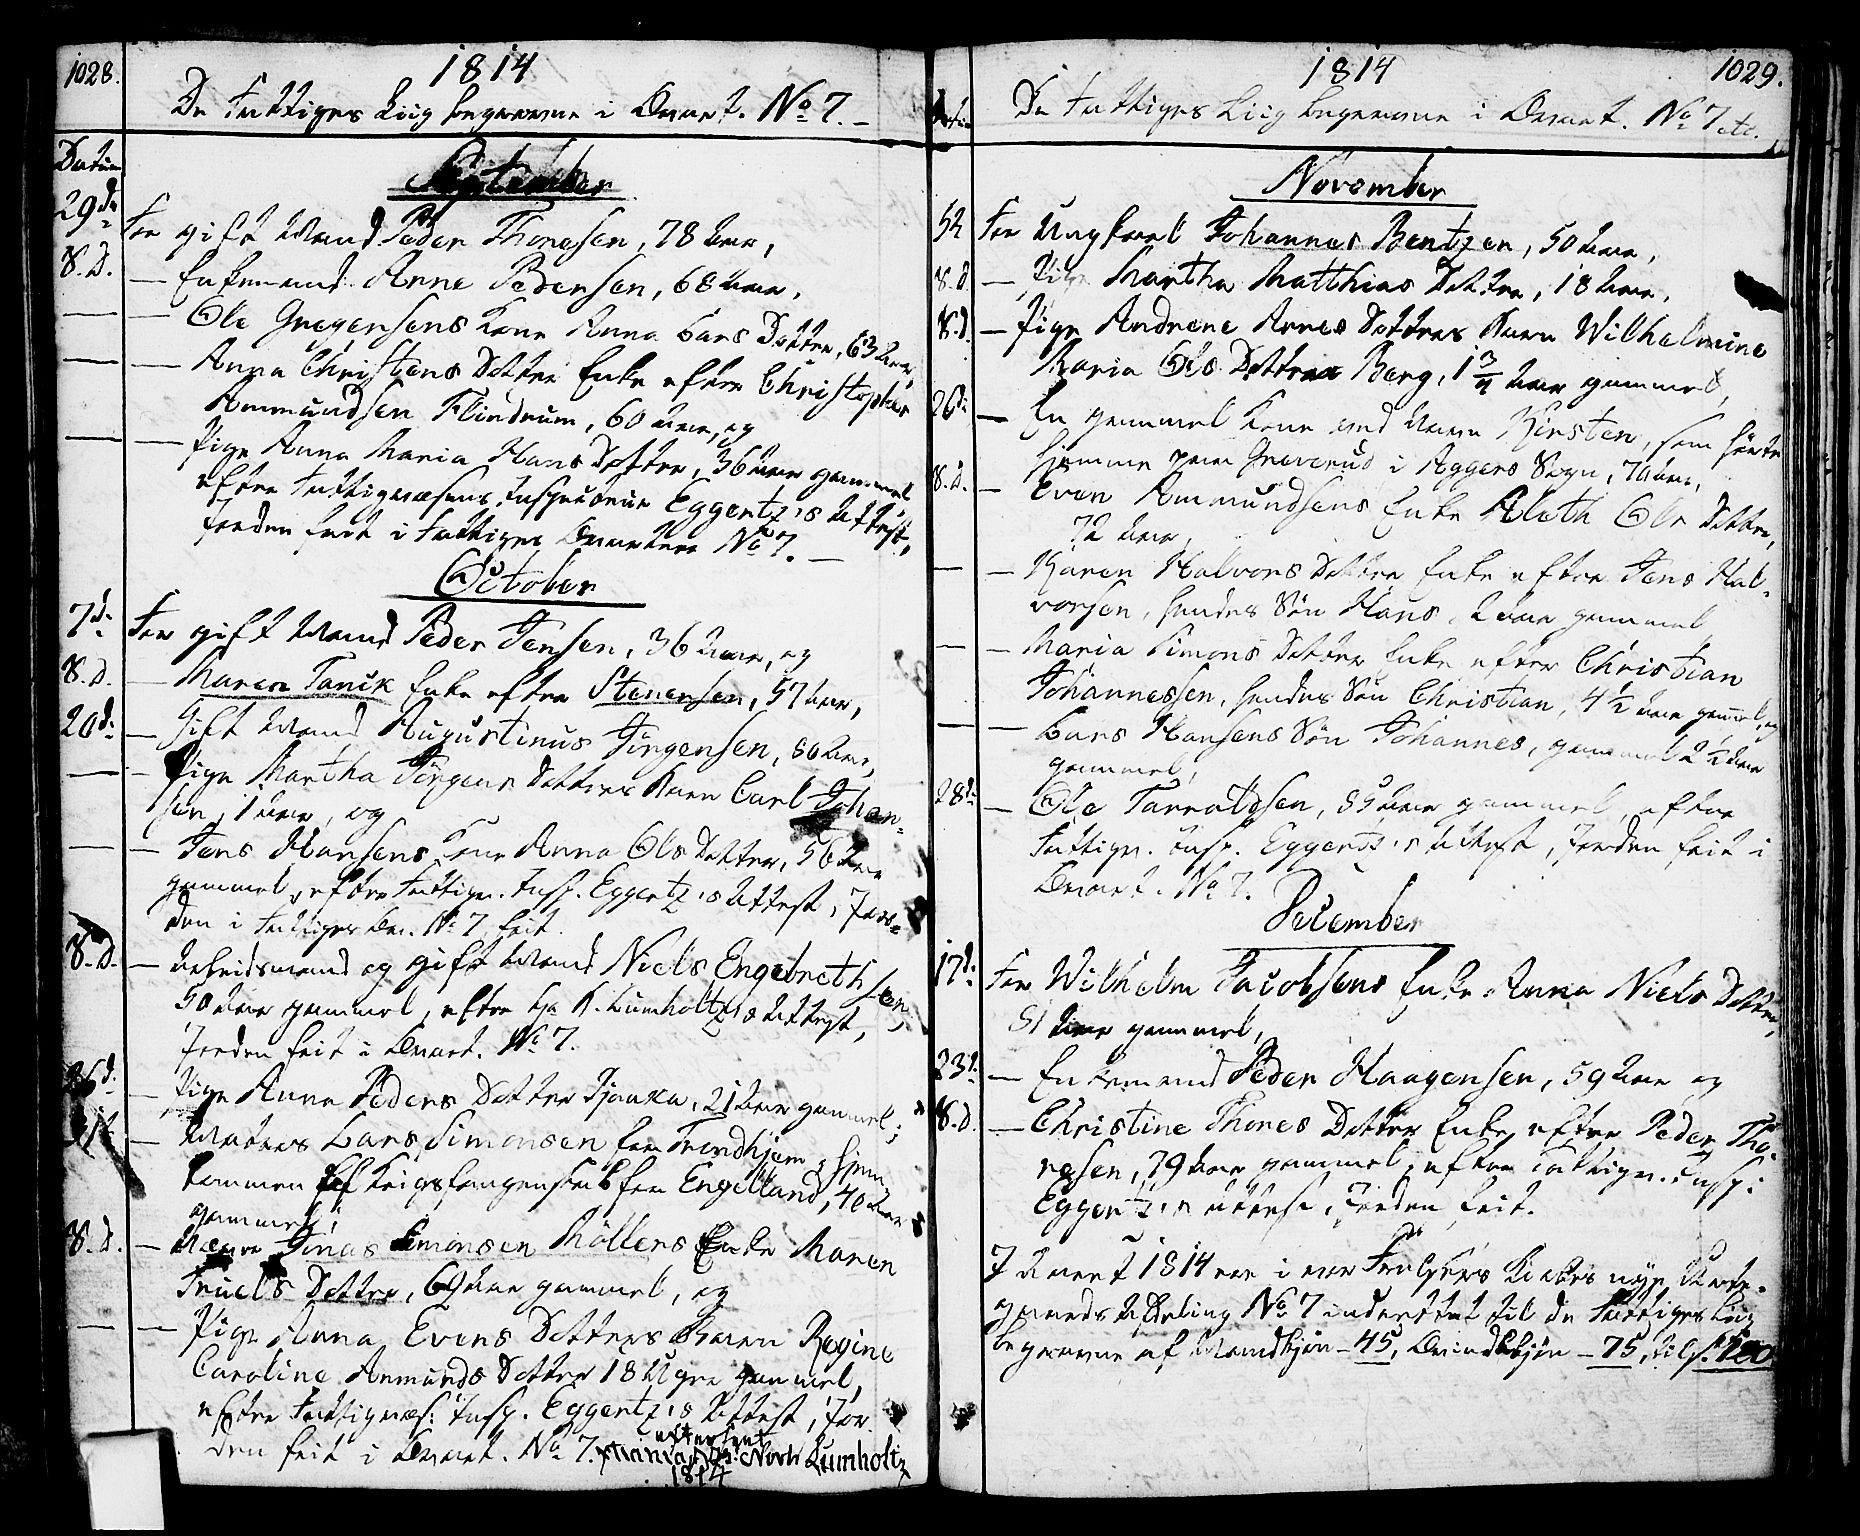 1028.
1814
De Fattiges Liig begravne i Qvart. No 7.
Datum
September
29de For gift Mand Peder Thoresen, 78 Aar,
S. D. — Enkemand Arne Pedersen, 68 Aar,
— — Ole Gregersens Kone Anna Lars Dotter, 63 Aar,
— — Anna Christens Dotter Enke efter Christopher
Ammundsen Flindrum, 60 Aar, og
— — Pige Anna Maria Hans Dotter, 36 Aar gammel
efter Fattigvæsens Inspecteur Eggertz's Attest,
Jorden frit i Fattiges Qvarteer No 7.
October
7de For gift Mand Peder Jensen, 36 Aar, og
S. D. — Maren Tanck Enke efter Stenersen, 57 Aar,
20de — Gift Mand Augustinus Jörgensen, 50 Aar,
— — Pige Martha Jörgens Dotters Barn Carl Johan-
sen, 1 Aar, og
— — Jens Hansens Kone Anna Ols Dotter, 56 Aar
gammel, efter Fattigv. Insp. Eggertz's Attest, Jor-
den i Fattiges Qv. No 7 frit.
S. D. — Arbeidsmand og gift Mand Niels Engebrethsen,
50 Aar gammel, efter Hr N. Lumholtz's Attest,
Jorden frit i Qvart. No 7.
26d. — Pige Anna Peders Dotter, 21 Aar gammel,
— Matros Lars Simonsen fra Trondhjem, hjem-
kommen af Krigsfangenskab fra Engelland, 40 Aar
gammel;
S. D. — Jonas Simonsen Möllers Enke Maren
Truels Dotter, 69 Aar gammel, og
— — Pige Anna Evens Dotters Barn Regine
Caroline Anmunds Dotter 18 Uger gammel,
efter Fattigvæs: Insp. Eggertz's Attest, Jor-
den frit i Qvart. No 7.
efter
Lumholtz
1814
1814
1029.
De Fattiges Liig begravne i Qvart. No 7 etc.
November
5te For Ungkarl Johannes Bentzen, 50 Aar,
S. d. — Pige Martha Matthias Dotter, 18 Aar,
S. d. — Pige Andrene Arnes Dotters Barn Wilhelmine
Maria Ols Dotter Berg, 1 3/4 Aar gammel,
26de — En gammel Kone med Navn Kirsten, som hörte
hjemme paa Greverud i Aggers Sogn, 70 Aar,
S. d. — Even Ammundsens Enke Aleth Ole Dotter,
72 Aar,
— — Karen Halvors Dotter Enke efter Jens Hal-
vorsen, hendes Sön Hans, 2 Aar gammel
— — Maria Simons Dotter Enke efter Christian
Johannessen, hendes Sön Christian, 4 1/2 Aar gammel, og
— — Lars Hansens Sön Johannes, gammel 2 1/2 Aar
gammel,
28de — Ole Tarraldsen, 55 Aar gammel, efter
Fattigv. Insp. Eggertz's Attest, Jorden frit i
Qvart. No 7.
December
17de For Wilhelm Jacobsens Enke Anna Niels Dotter,
51 Aar gammel,
23d. — Enkemand Peder Haagensen, 59 Aar og
S. d. — Christine Thores Dotter Enke efter Peder Tho-
resen, 79 Aar gammel, efter Fattigv. Insp:
Eggertz's Attest, Jorden frit.
I Aaret 1814 ere i vor Frelsers Kirkes nye Kirke-
gaards Afdeling No 7 indrettet til de Fattiges Liig
begravne af Mandkjön — 45, Qvindekjön — 75, tils. 120